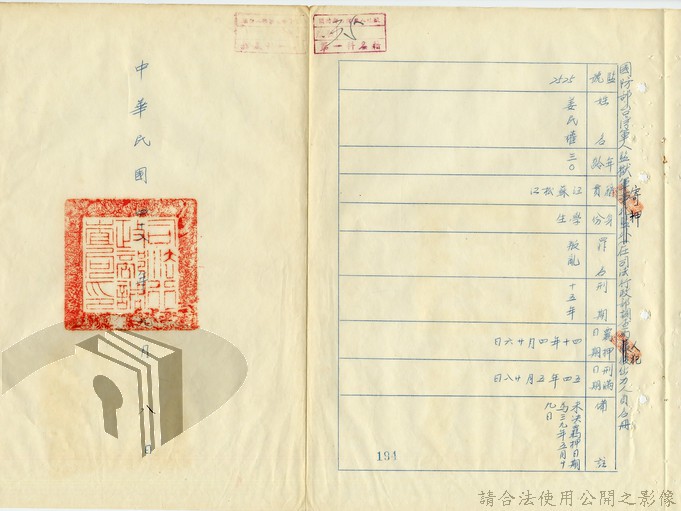 國防部台灣軍人監獄寄押在司法行政部調查局人犯名冊
監號
姓名
年齡
籍貫
身份
罪名
刑期
羈押日期
刑滿日期
備註
2525
姜民權
三〇
江蘇松江
學生
叛亂
十五年
四十年四月廿六日
五四年五月廿八日
未決羈押日期
為三九年五月廿
九日
194
第一件名箱
中華民國
年
月八日
司法行政部調查局印
請合法使用公開之影像